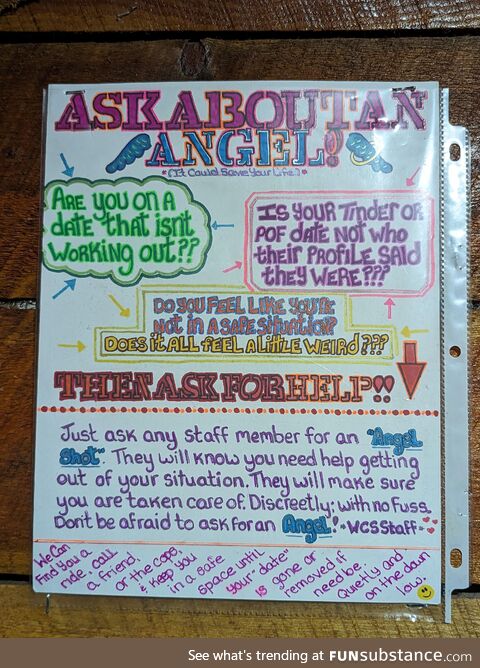 ASK ABOUT AN
ANGEL!
*(It Could Save Your Life.)*
ARE YOU ON A
DATE THAT ISNT
WORKING OUT??
IS YOUR TINDER OR
POF DATE NOT WHO
THEIR PROFILE SAID
THEY WERE???
DO YOU FEEL LIKE YOU'RE
NOT IN A SAFE SITUATION?
DOES IT ALL FEEL A LITTLE WEIRD???
THEN ASK FOR HELP!!
Just ask any staff member for an "Angel
Shot". They will know you need help getting
out of your situation. They will make sure
you are taken care of. Discreetly; with no Fuss.
Don't be afraid to ask for an Angel! - WCS Staff -
We Can
Find you a
ride, call
a friend
or the cops,
& keep you
in a safe
space until
your "date"
is gone or
removed if
need be.
Quietly and
on the down
low.
See what's trending at FUNsubstance.com